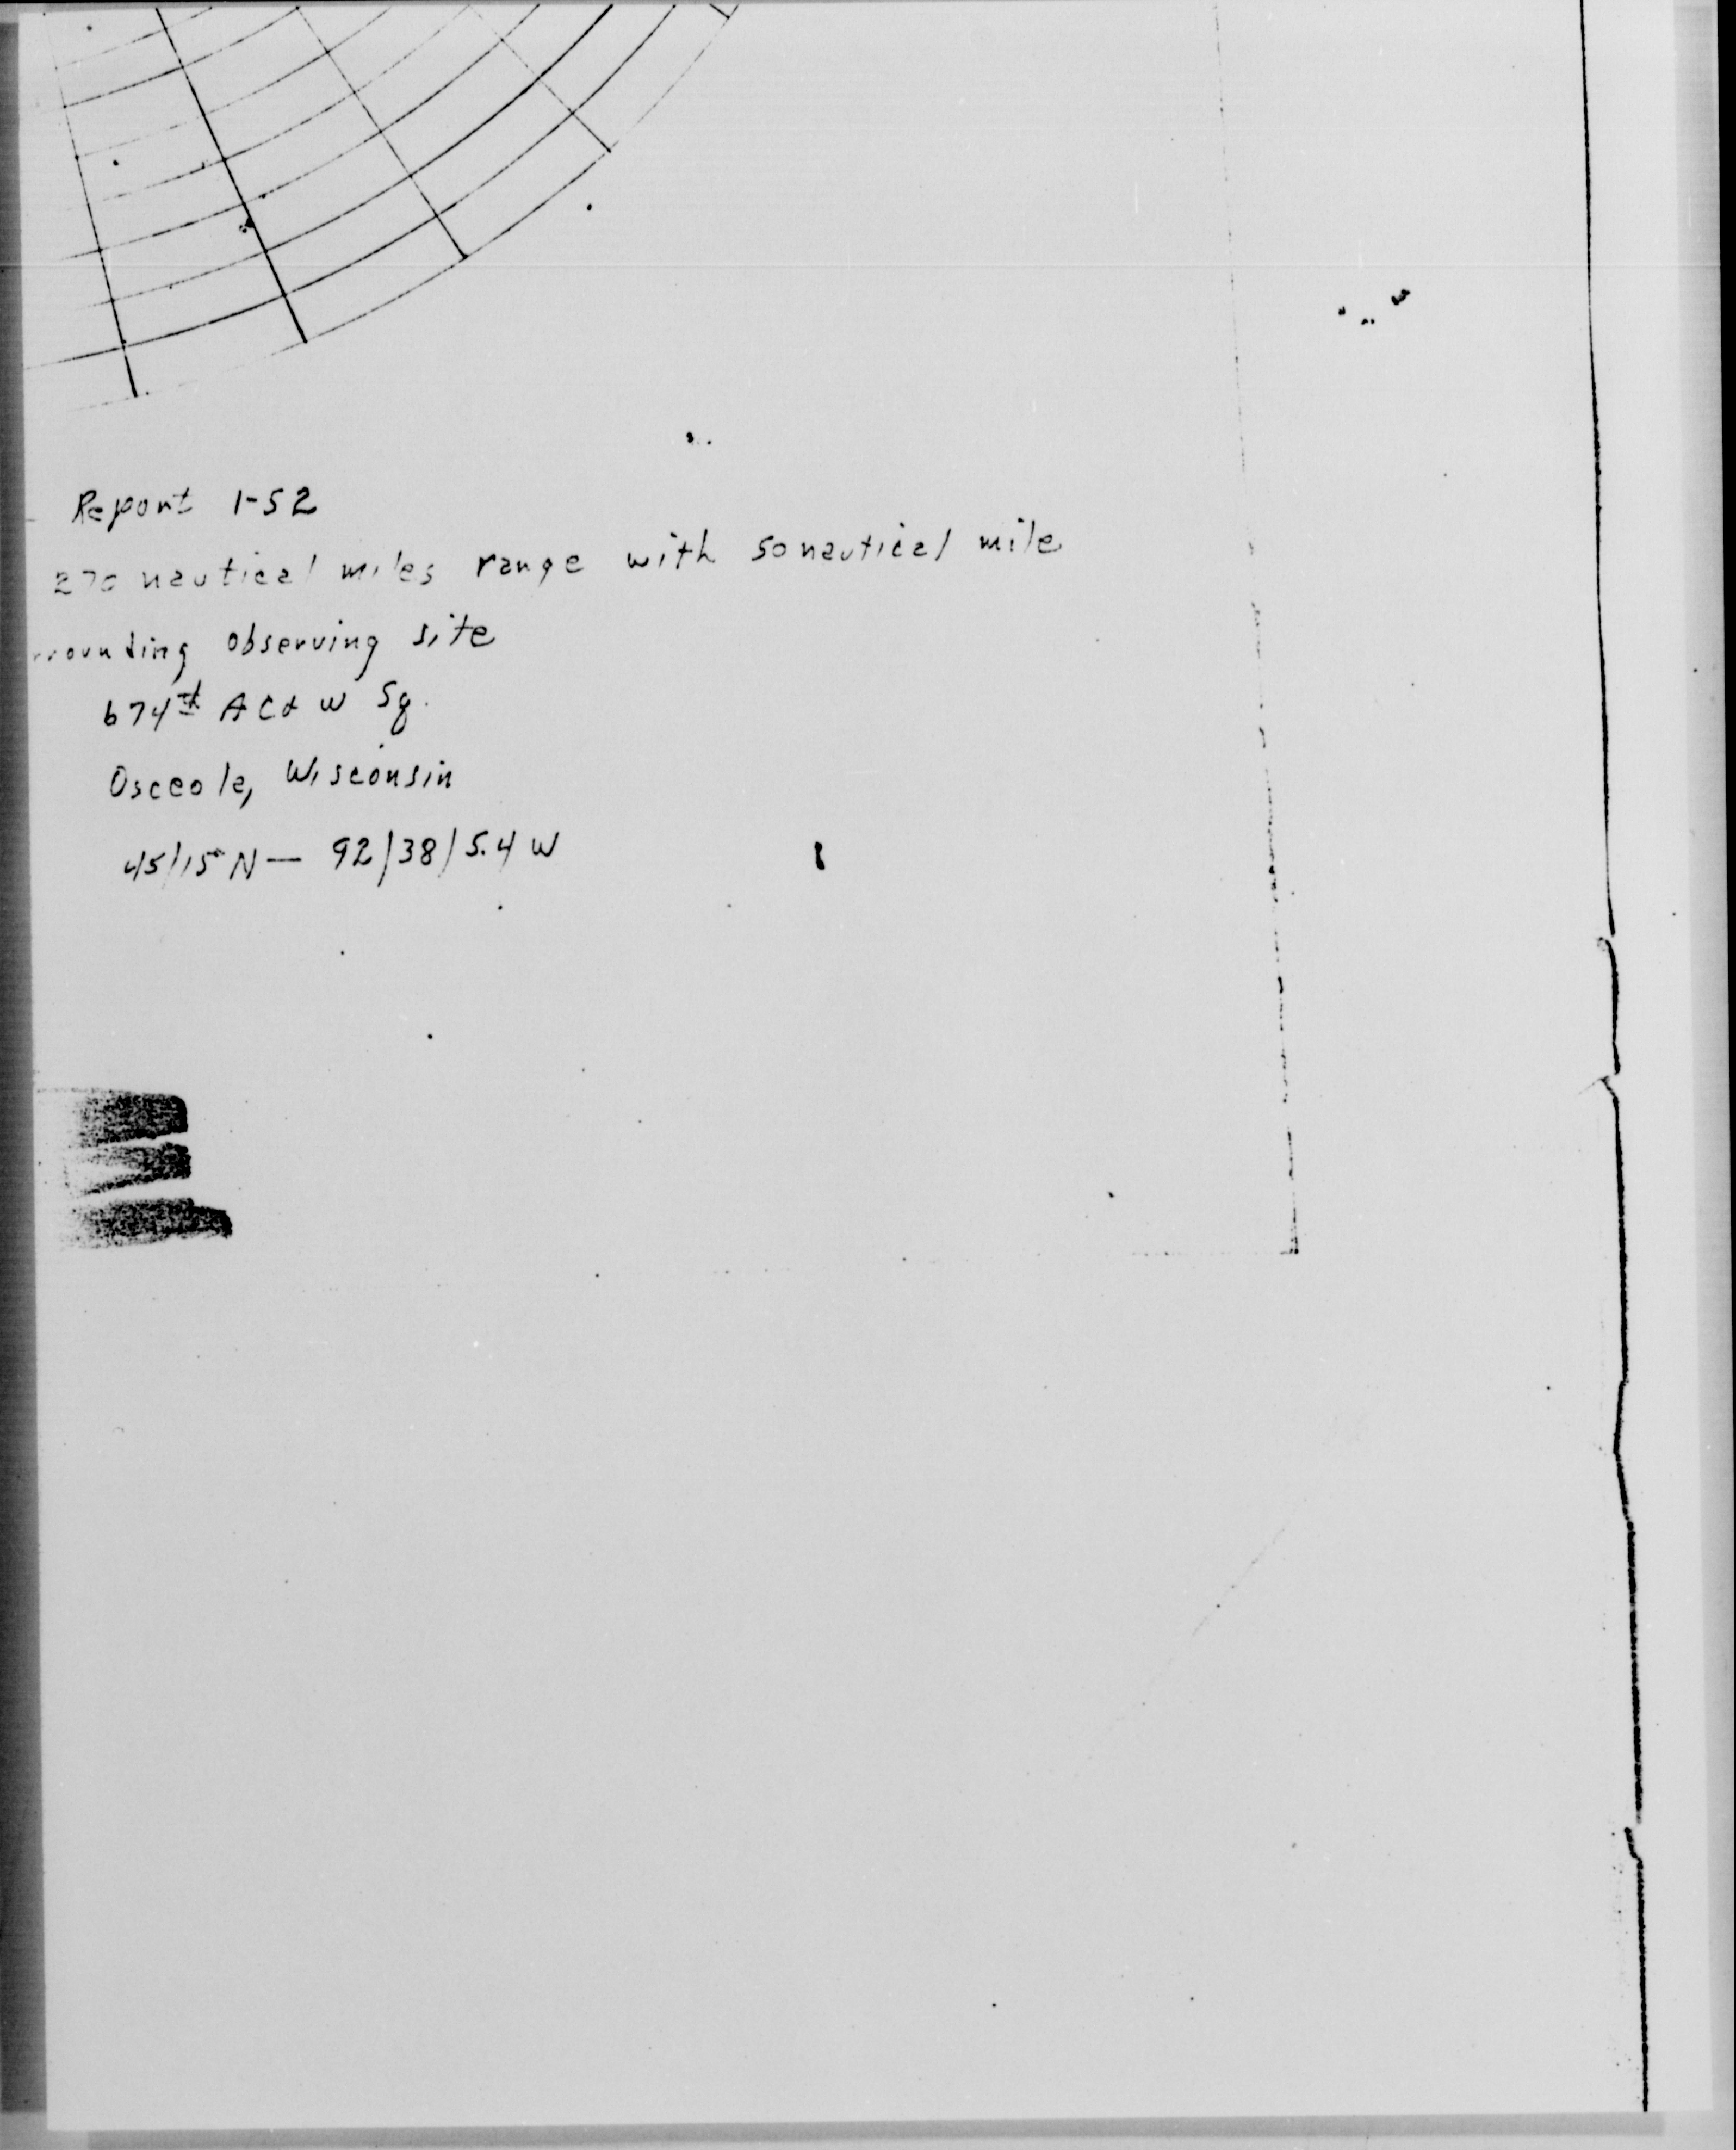 Report 1-52
270 nautical miles range with 50 nautical mile
rrounding observing site
674th AC&W Sq.
Osceola, Wisconsin
45/15 N — 92/38/5.4 W